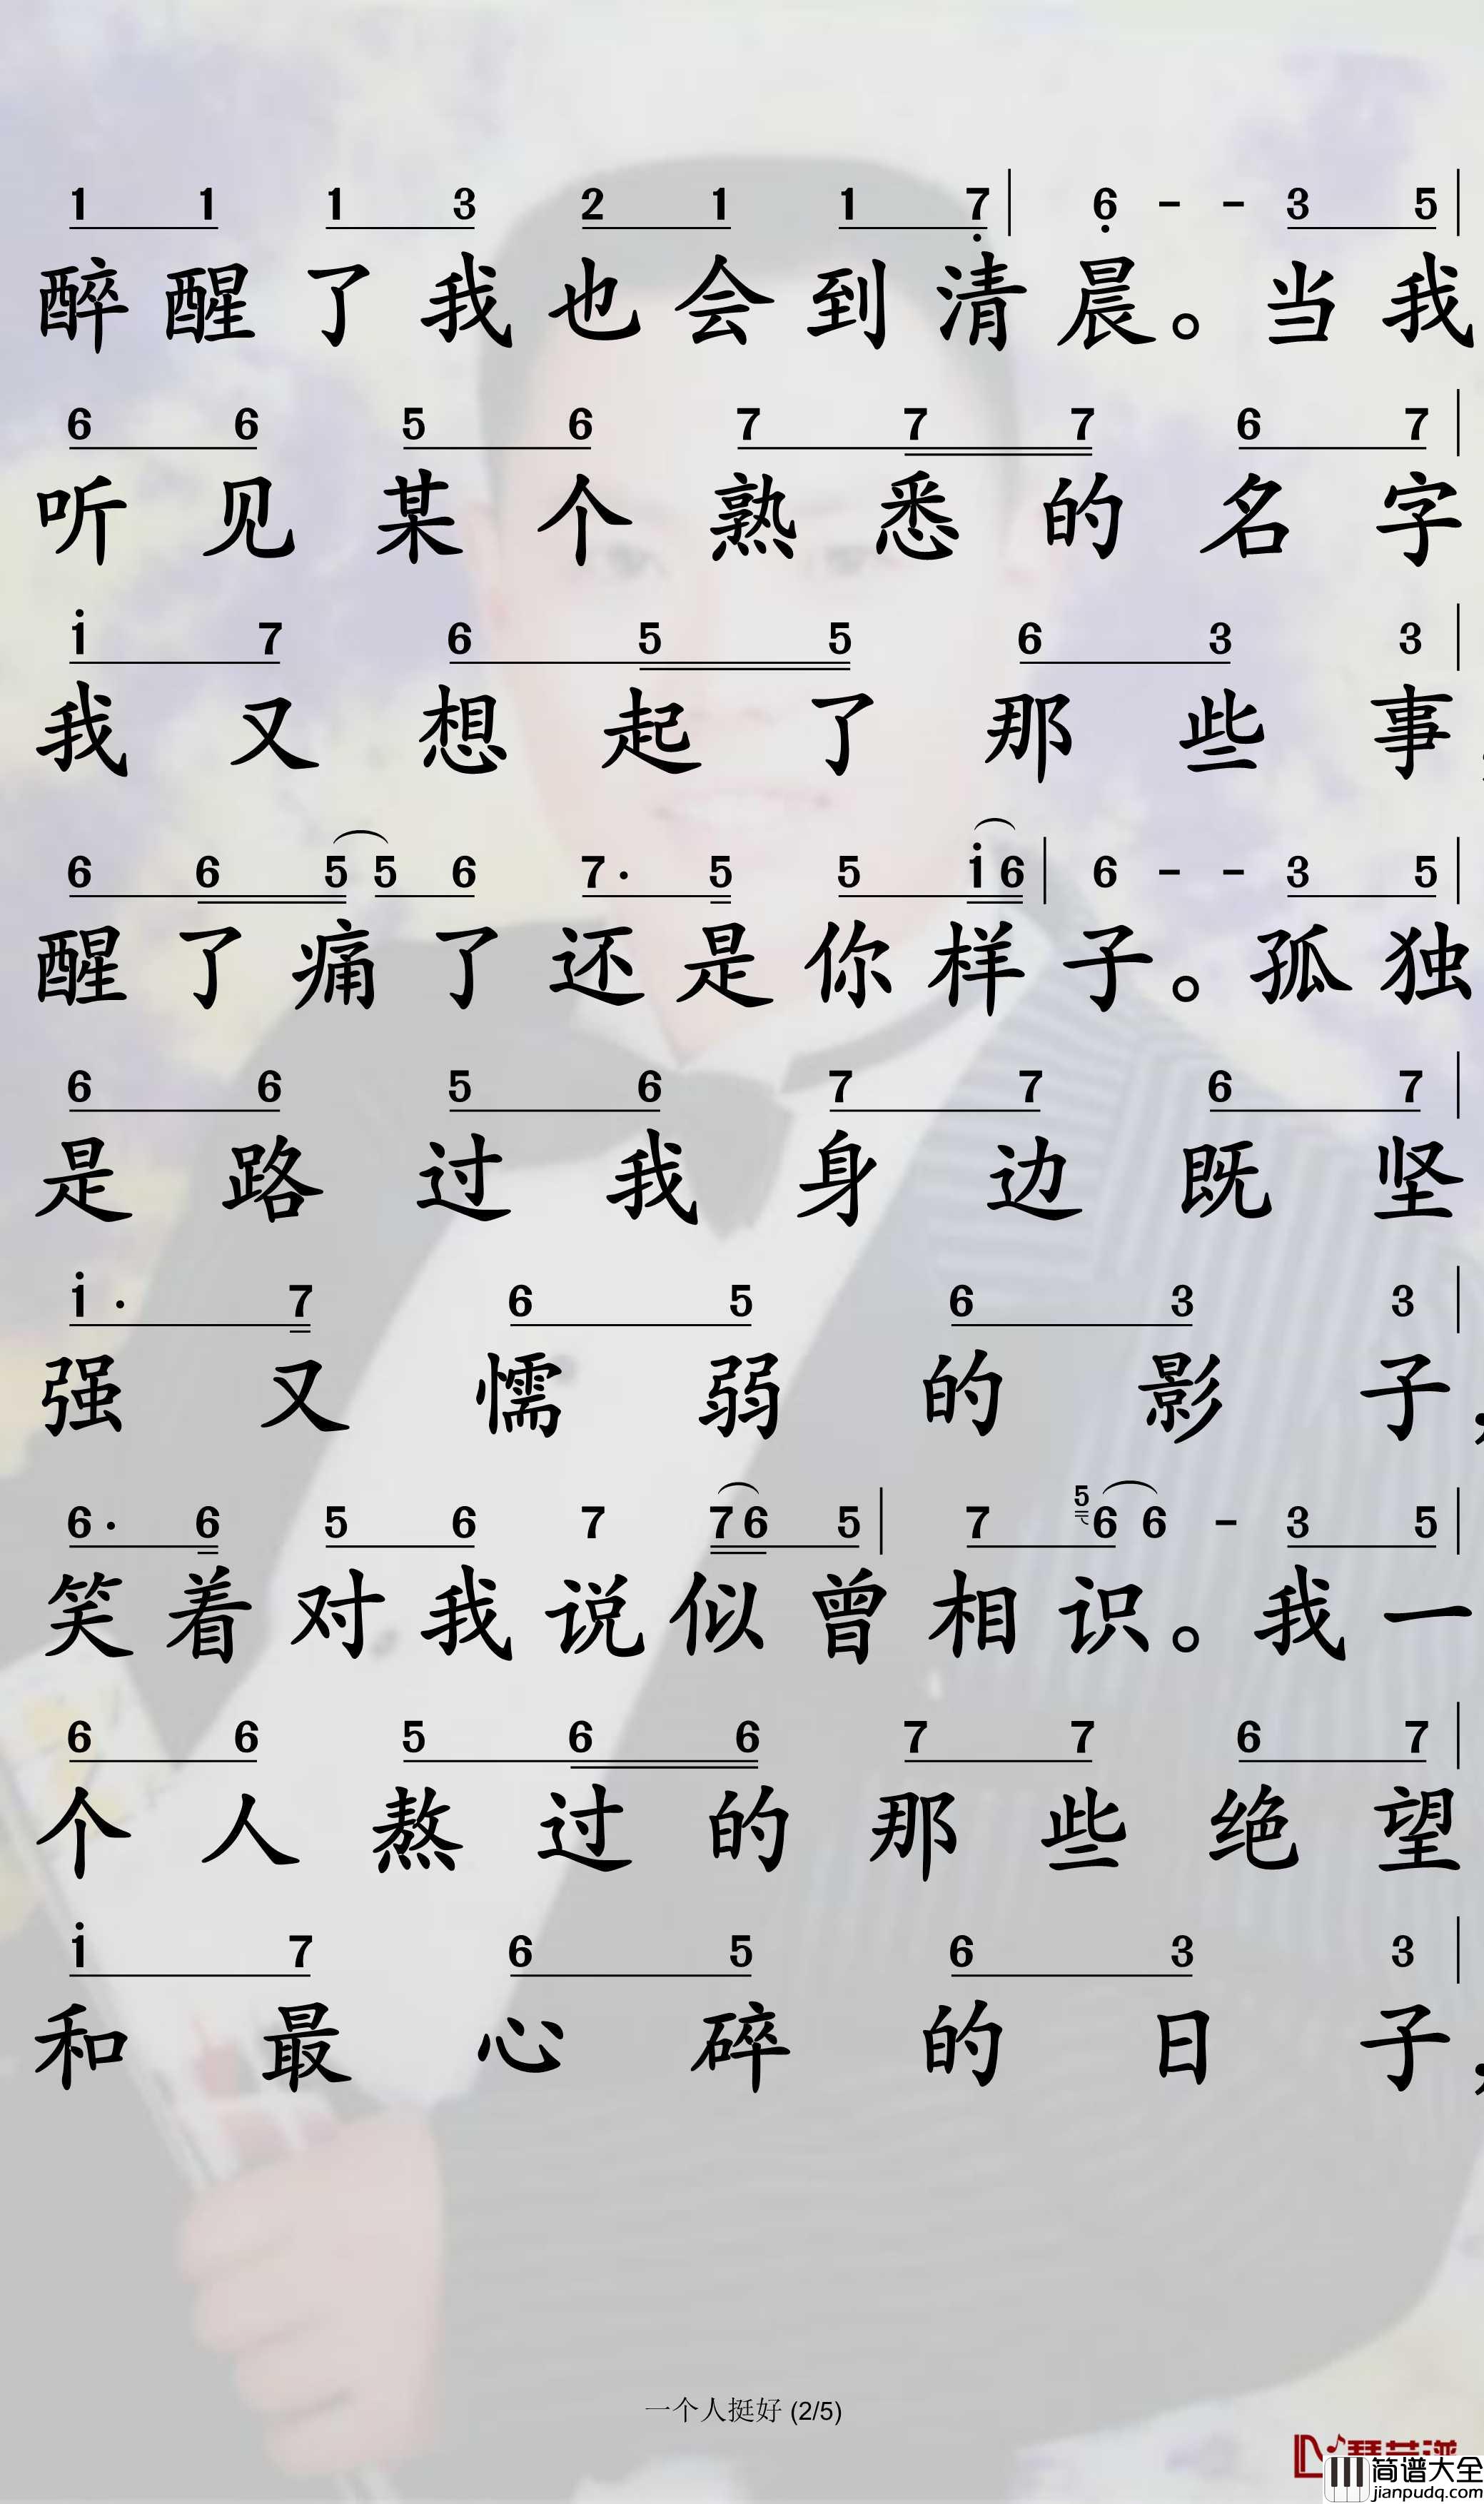 1 1 1 3 2 1 1 7̣ | 6̣ - - 3 5 |
醉醒了我也会到清晨。当我
6 6 5 6 7 7 7 6 7 |
听见某个熟悉的名字
i 7 6 5 5 6 3 3 |
我又想起了那些事,
6 6 5 5 6 7· 5 5 i 6 | 6 - - 3 5 |
醒了痛了还是你样子。孤独
6 6 5 6 7 7 6 7 |
是路过我身边既坚
i· 7 6 5 6 3 3 |
强又懦弱的影子,
6· 6 5 6 7 7 6 5 | 7 5 6 6 - 3 5 |
笑着对我说似曾相识。我一
6 6 5 6 6 7 7 6 7 |
个人熬过的那些绝望
i 7 6 5 6 3 3 |
和最心碎的日子,
一个人挺好 (2/5)
简谱大全
jianpudq.com